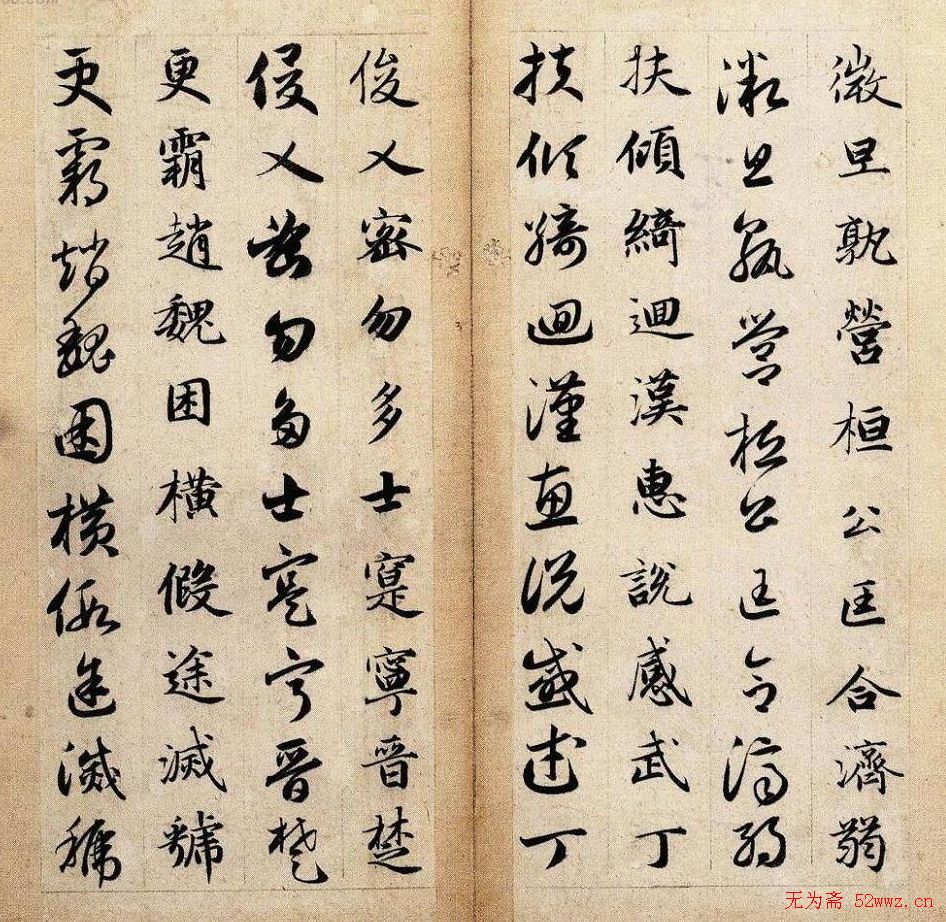 微旦孰營桓公匡合濟弱
微旦孰營桓公匡合濟弱
扶傾綺迴漢惠說感武丁
扶傾綺迴漢惠說感武丁
俊乂密勿多士寔寧晉楚
俊乂密勿多士寔寧晉楚
更霸趙魏困橫假途滅虢
更霸趙魏困橫假途滅虢
无为斋 52wwz.cn